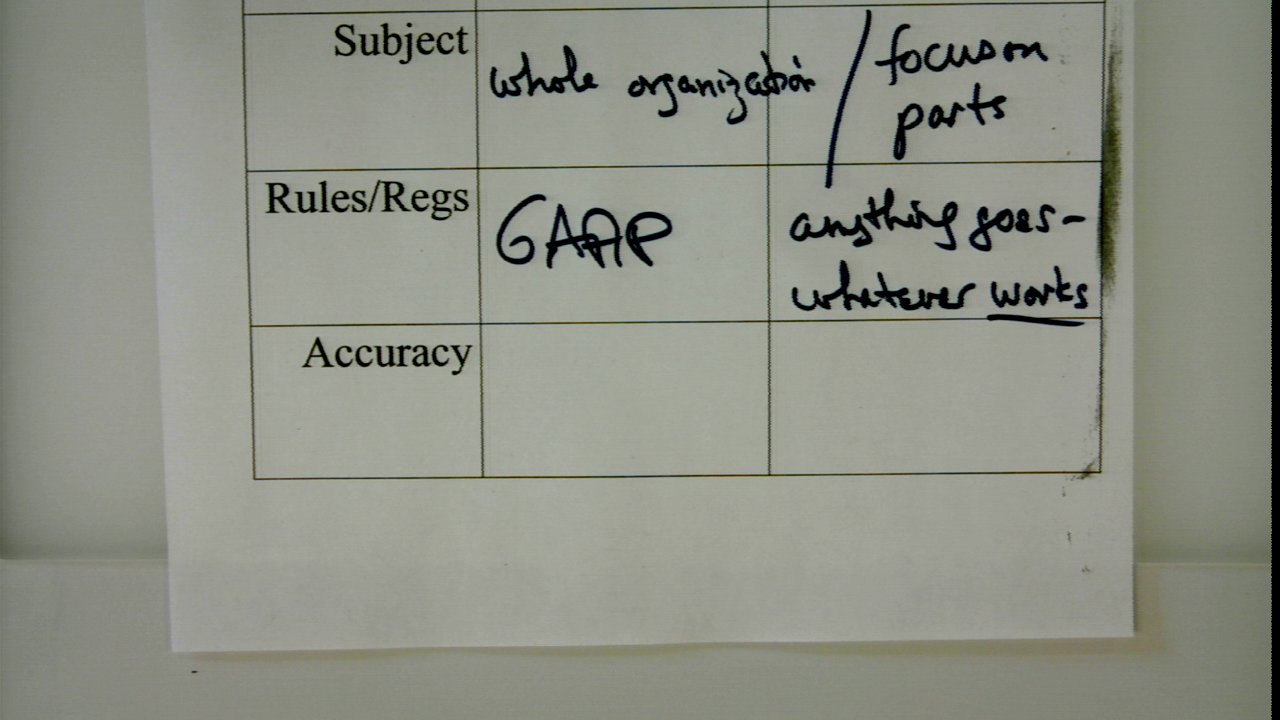 Subject
whole organization / focus on
parts
Rules/Regs
GAAP
anything goes-
whatever works
Accuracy